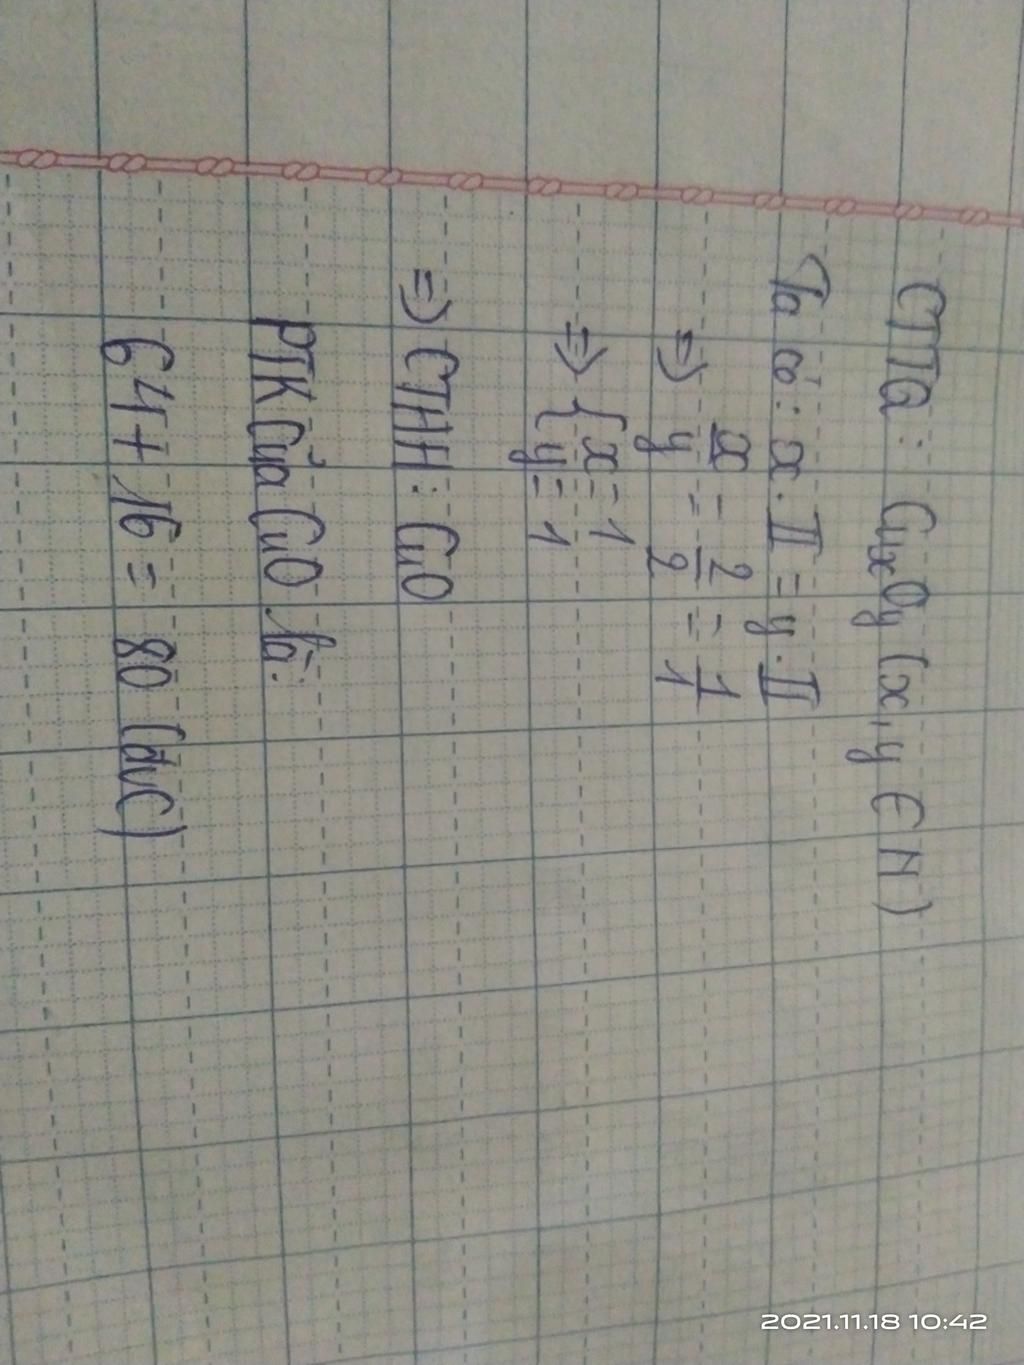 CTTQ: CuxOy (x, y ∈ N)
Ta có: x. II = y. II
=> x/y = 2/2 = 1/1
=> { x = 1
y = 1
=> CTHH: CuO
PTK của CuO là:
64 + 16 = 80 (đvC)
2021.11.18 10:42